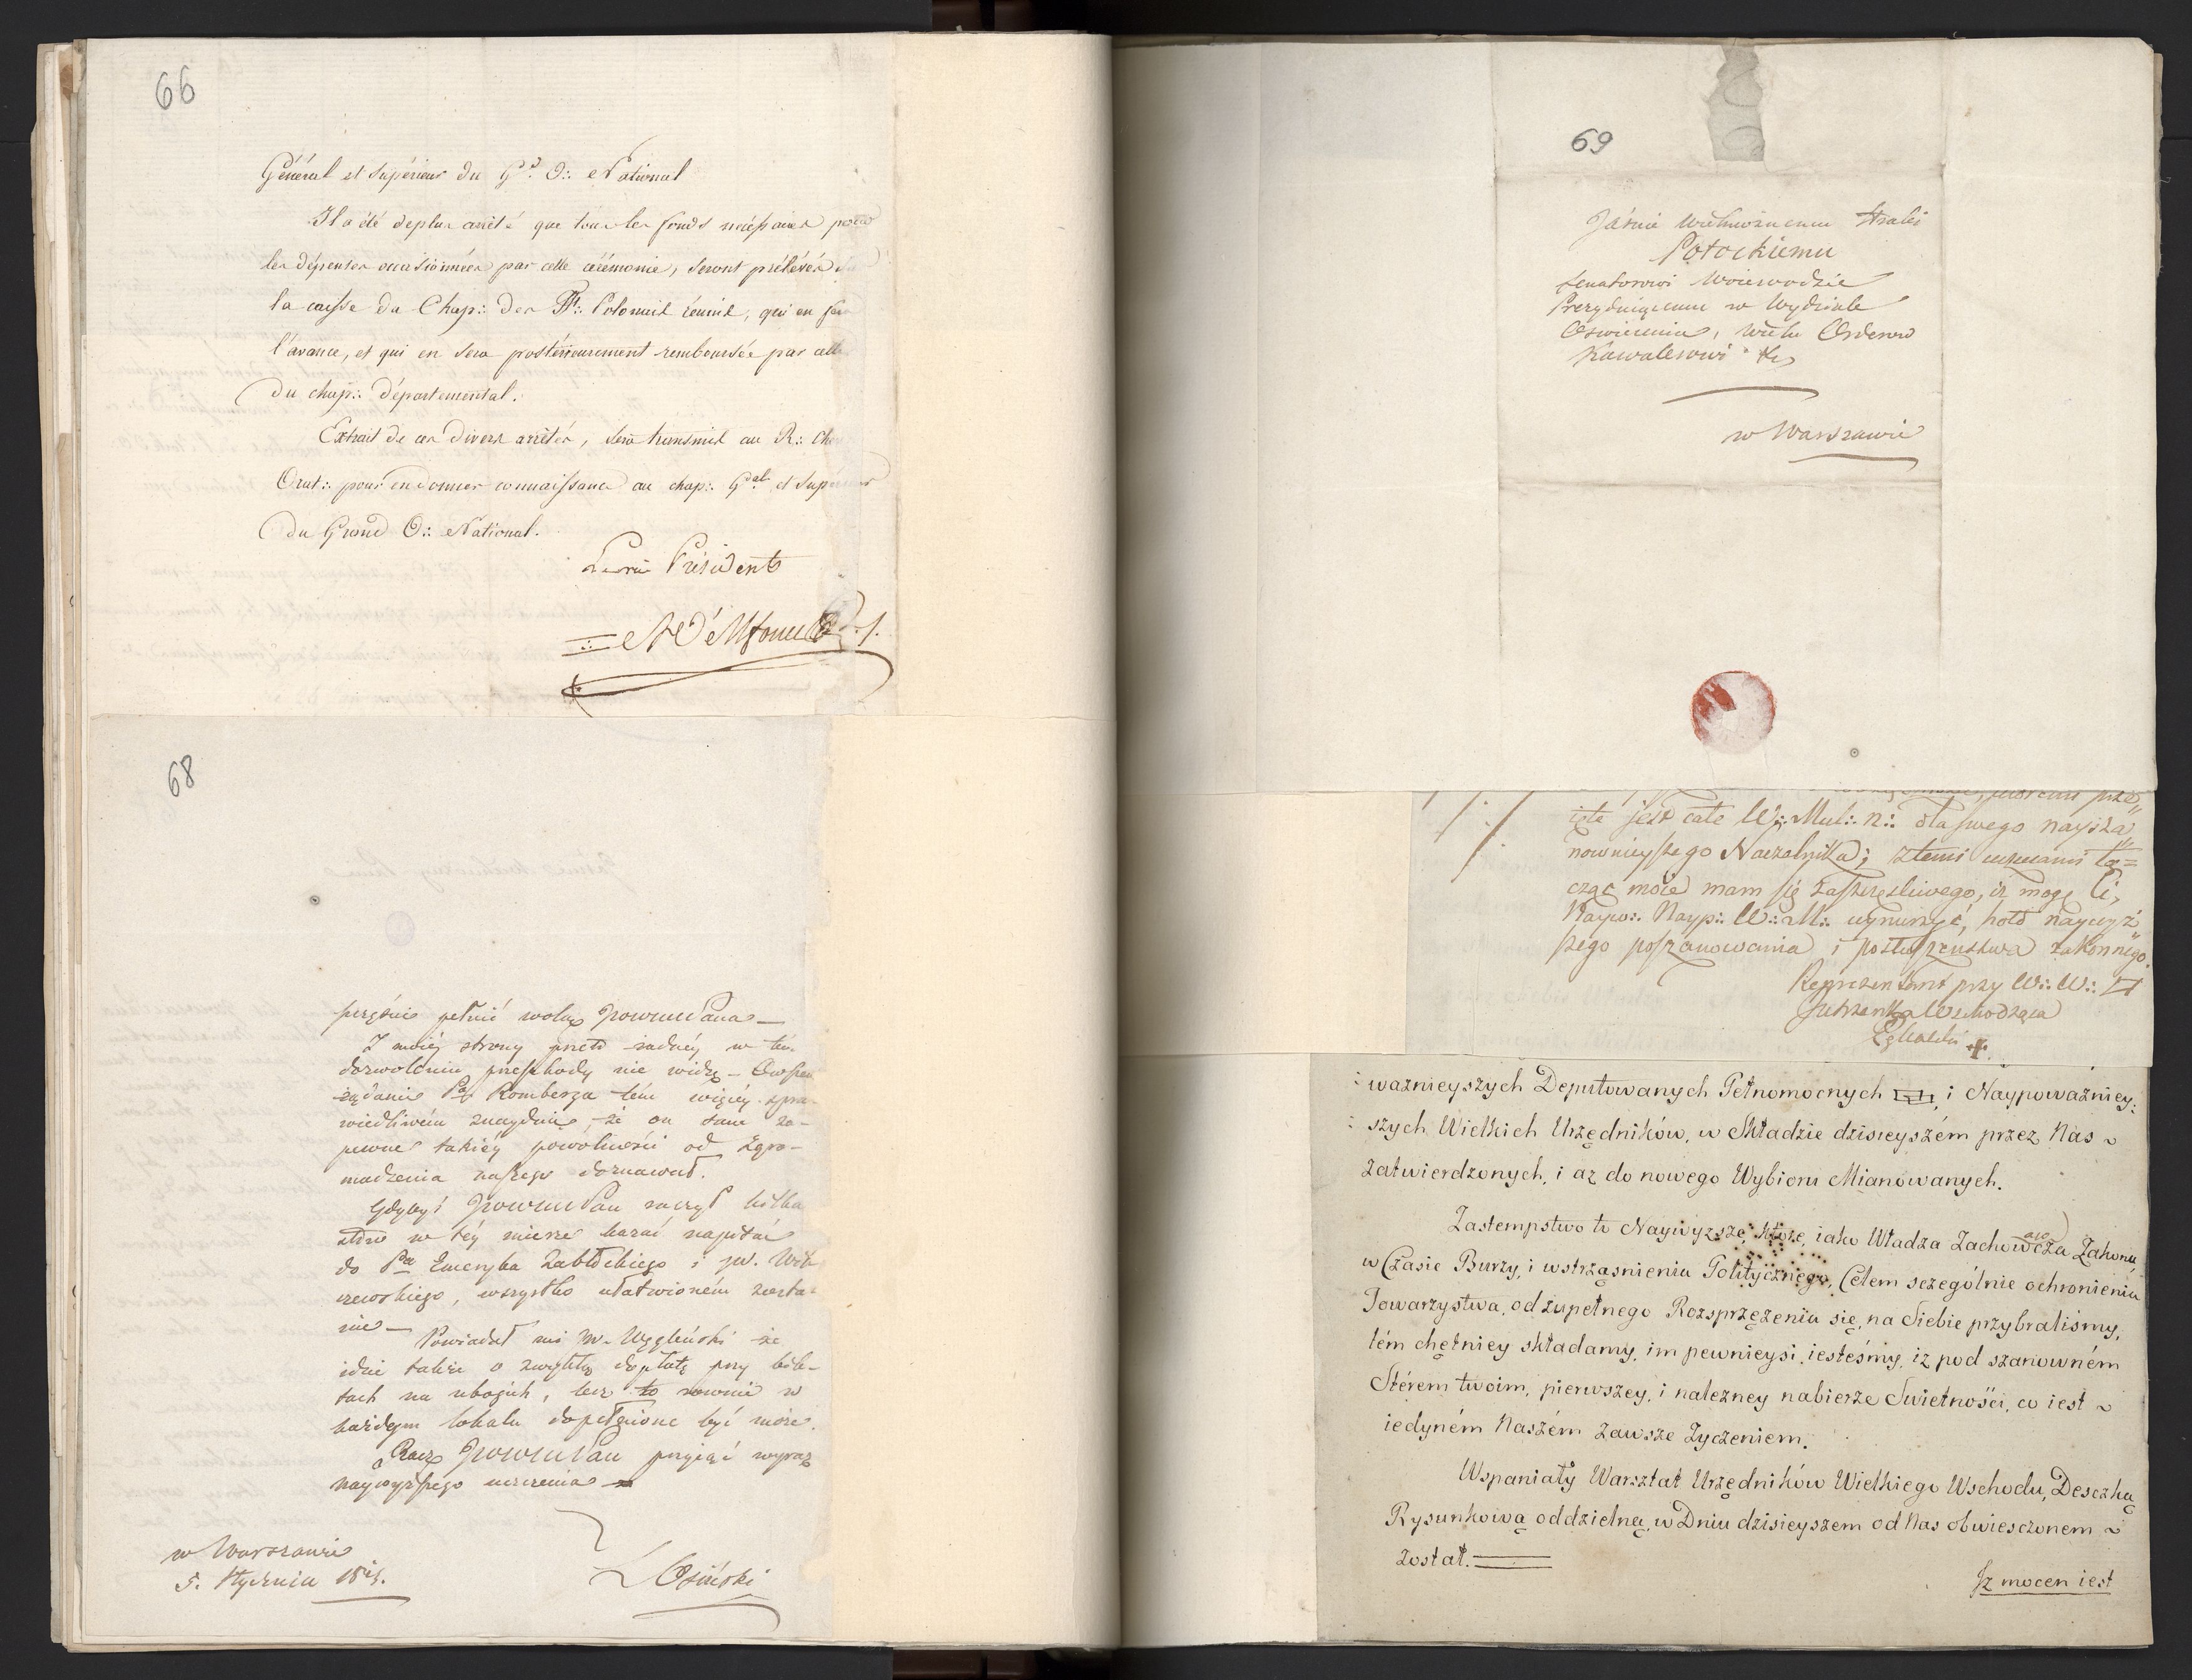 66
Général et Supérieur du Gd. O∴ National
Il a été deplus arrêté que tous les fonds nécessaires pour
les dépenses occasionnées par cette cérémonie, seront prélevés
la caisse du Chap∴ des FF∴ Polonais réunis, qui en fera
l'avance, et qui en sera postérieurement remboursée par celle
du chap∴ départemental.
Extrait de ces divers arrêtés, sera transmis au R∴ che
Orat∴ pour en donner connaissance au chap∴ Gal et Supérieur
du Grand O∴ National.
Président
68
pełnić wolę JWWW Pana —
Z moiéj strony przeto żadnéj w tém
dozwoleniu przeszkody nie widzę —
żądanie Pa Romberga tém więcéj spra-
wiedliwém znayduię, że on sam za-
pewne takiéy powolności od Zgro-
madzenia naszego doznawał.
Gdybyś JWWW Pan raczył kilka
słów w téy mierze kazać napisać
do Pa Emeryka Zabłockiego i JW. Wit
rzewskiego, wszystko ułatwioném zosta-
nie —
Powiadał mi JW. Węgleński że
idzie także o zwykłą dopłatę przy bile-
tach na ubogich, lecz to równie w
każdym lokalu dopełnione być może.
Racz JWWW Pan przyiąć wyraz
naywyższego uczczenia
w Warszawie
5. Stycznia
LOsiński
69
Jaśnie Wielmożnemu Hrabi
Potockiemu
Senatorowi Woiewodzie
Prezyduiącemu w Wydziale
Oświecenia, Wielu Orderów
Kawalerowi &c
w Warszawie
ięte jest całe W∴ Mul∴ n∴ dla swego naysza
nownieyszego Naczelnika; z temi uczuciami łą=
cząc moie mam się za szczęśliwego, iż mogę Ci,
Nayw∴ Nayp∴ W∴ M∴ wynurzyć, hołd naywyż
szego poszanowania i posłuszeństwa zakonnego.
Reprezentant przy W∴ W∴
Jutrzenka Wschodząca
ważnieyszych Deputowanych Pełnomocnych i Naypoważniey:
szych Wielkich Urzędników, w Składzie dzisieyszém przez Nas
zatwierdzonych, i aż do nowego Wybioru Mianowanych.
Zastempstwo to Naywyższe, które, iako Władza Zachowawcza Zakonu,
w Czasie Burzy, i wstrząsnieniu Politycznego, Celem sczególnie ochronieniu
Towarzystwa, od zupełnego Rozsprzężenia się, na Siebie przybraliśmy,
tém chętniey składamy, im pewnieysi iesteśmy, iż pod szanowném
Stérem twoim, pierwszey, i należney nabierze Swietności, co iest
iedyném Naszém zawsze Zyczeniem.
Wspaniały Warsztat Urzędników Wielkiego Wschodu, Desczką
Rysunkową oddzielną, w Dniu dzisieyszem od Nas obwiesczonem
został.
Iż mocen iest